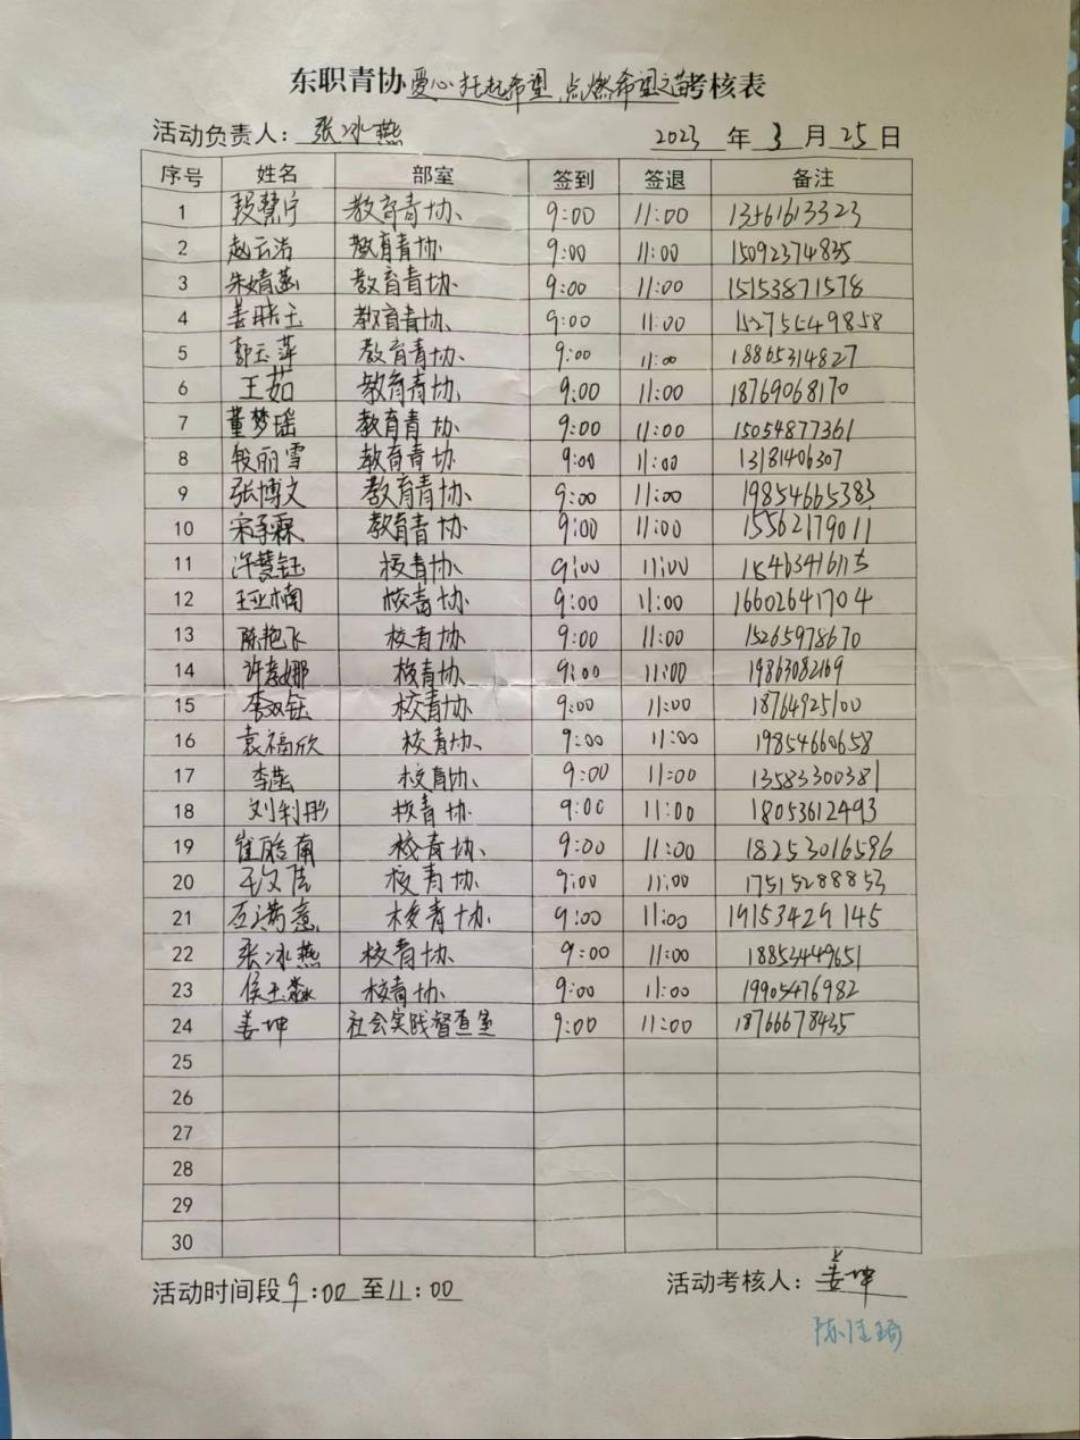 东职青协爱心托起希望,点燃希望之苗考核表
活动负责人: 张冰燕 2023 年 3 月 25 日
序号 姓名 部室 签到 签退 备注
1 段慧宁 教育青协 9:00 11:00 13561613323
2 赵云浩 教育青协 9:00 11:00 15092374835
3 朱婧菡 教育青协 9:00 11:00 15153871578
4 姜晓玉 教育青协 9:00 11:00 15275549858
5 郭玉萍 教育青协 9:00 11:00 18865314827
6 王茹 教育青协 9:00 11:00 18769068170
7 董梦瑶 教育青协 9:00 11:00 15054877361
8 殷丽雪 教育青协 9:00 11:00 13181406307
9 张博文 教育青协 9:00 11:00 19854665383
10 宋承霖 教育青协 9:00 11:00 15562179011
11 许慧钰 校青协 9:00 11:00
12 王亚楠 校青协 9:00 11:00 16602641704
13 陈艳飞 校青协 9:00 11:00 15265978670
14 许慧娜 校青协 9:00 11:00 19863082169
15 李双钰 校青协 9:00 11:00 18764925100
16 袁福欣 校青协 9:00 11:00 19854660658
17 李燕 校青协 9:00 11:00 13583300381
18 刘利彤 校青协 9:00 11:00 18053612493
19 崔皓南 校青协 9:00 11:00 18253016596
20 校青协 9:00 11:00 17515288853
21 石满意 校青协 9:00 11:00 19153429145
22 张冰燕 校青协 9:00 11:00 18853449651
23 侯玉淼 校青协 9:00 11:00 19905476982
24 姜坤 社会实践督查室 9:00 11:00 18766678435
25
26
27
28
29
30
活动时间段 9:00 至 11:00 活动考核人: 姜坤